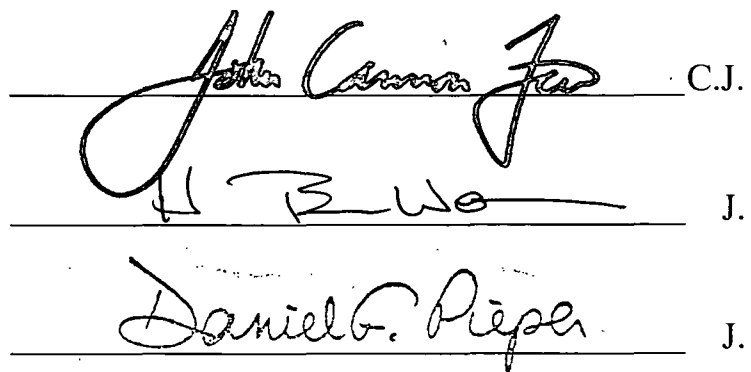 John Cannon Few C.J.
H B W J.
Daniel F. Pieper J.